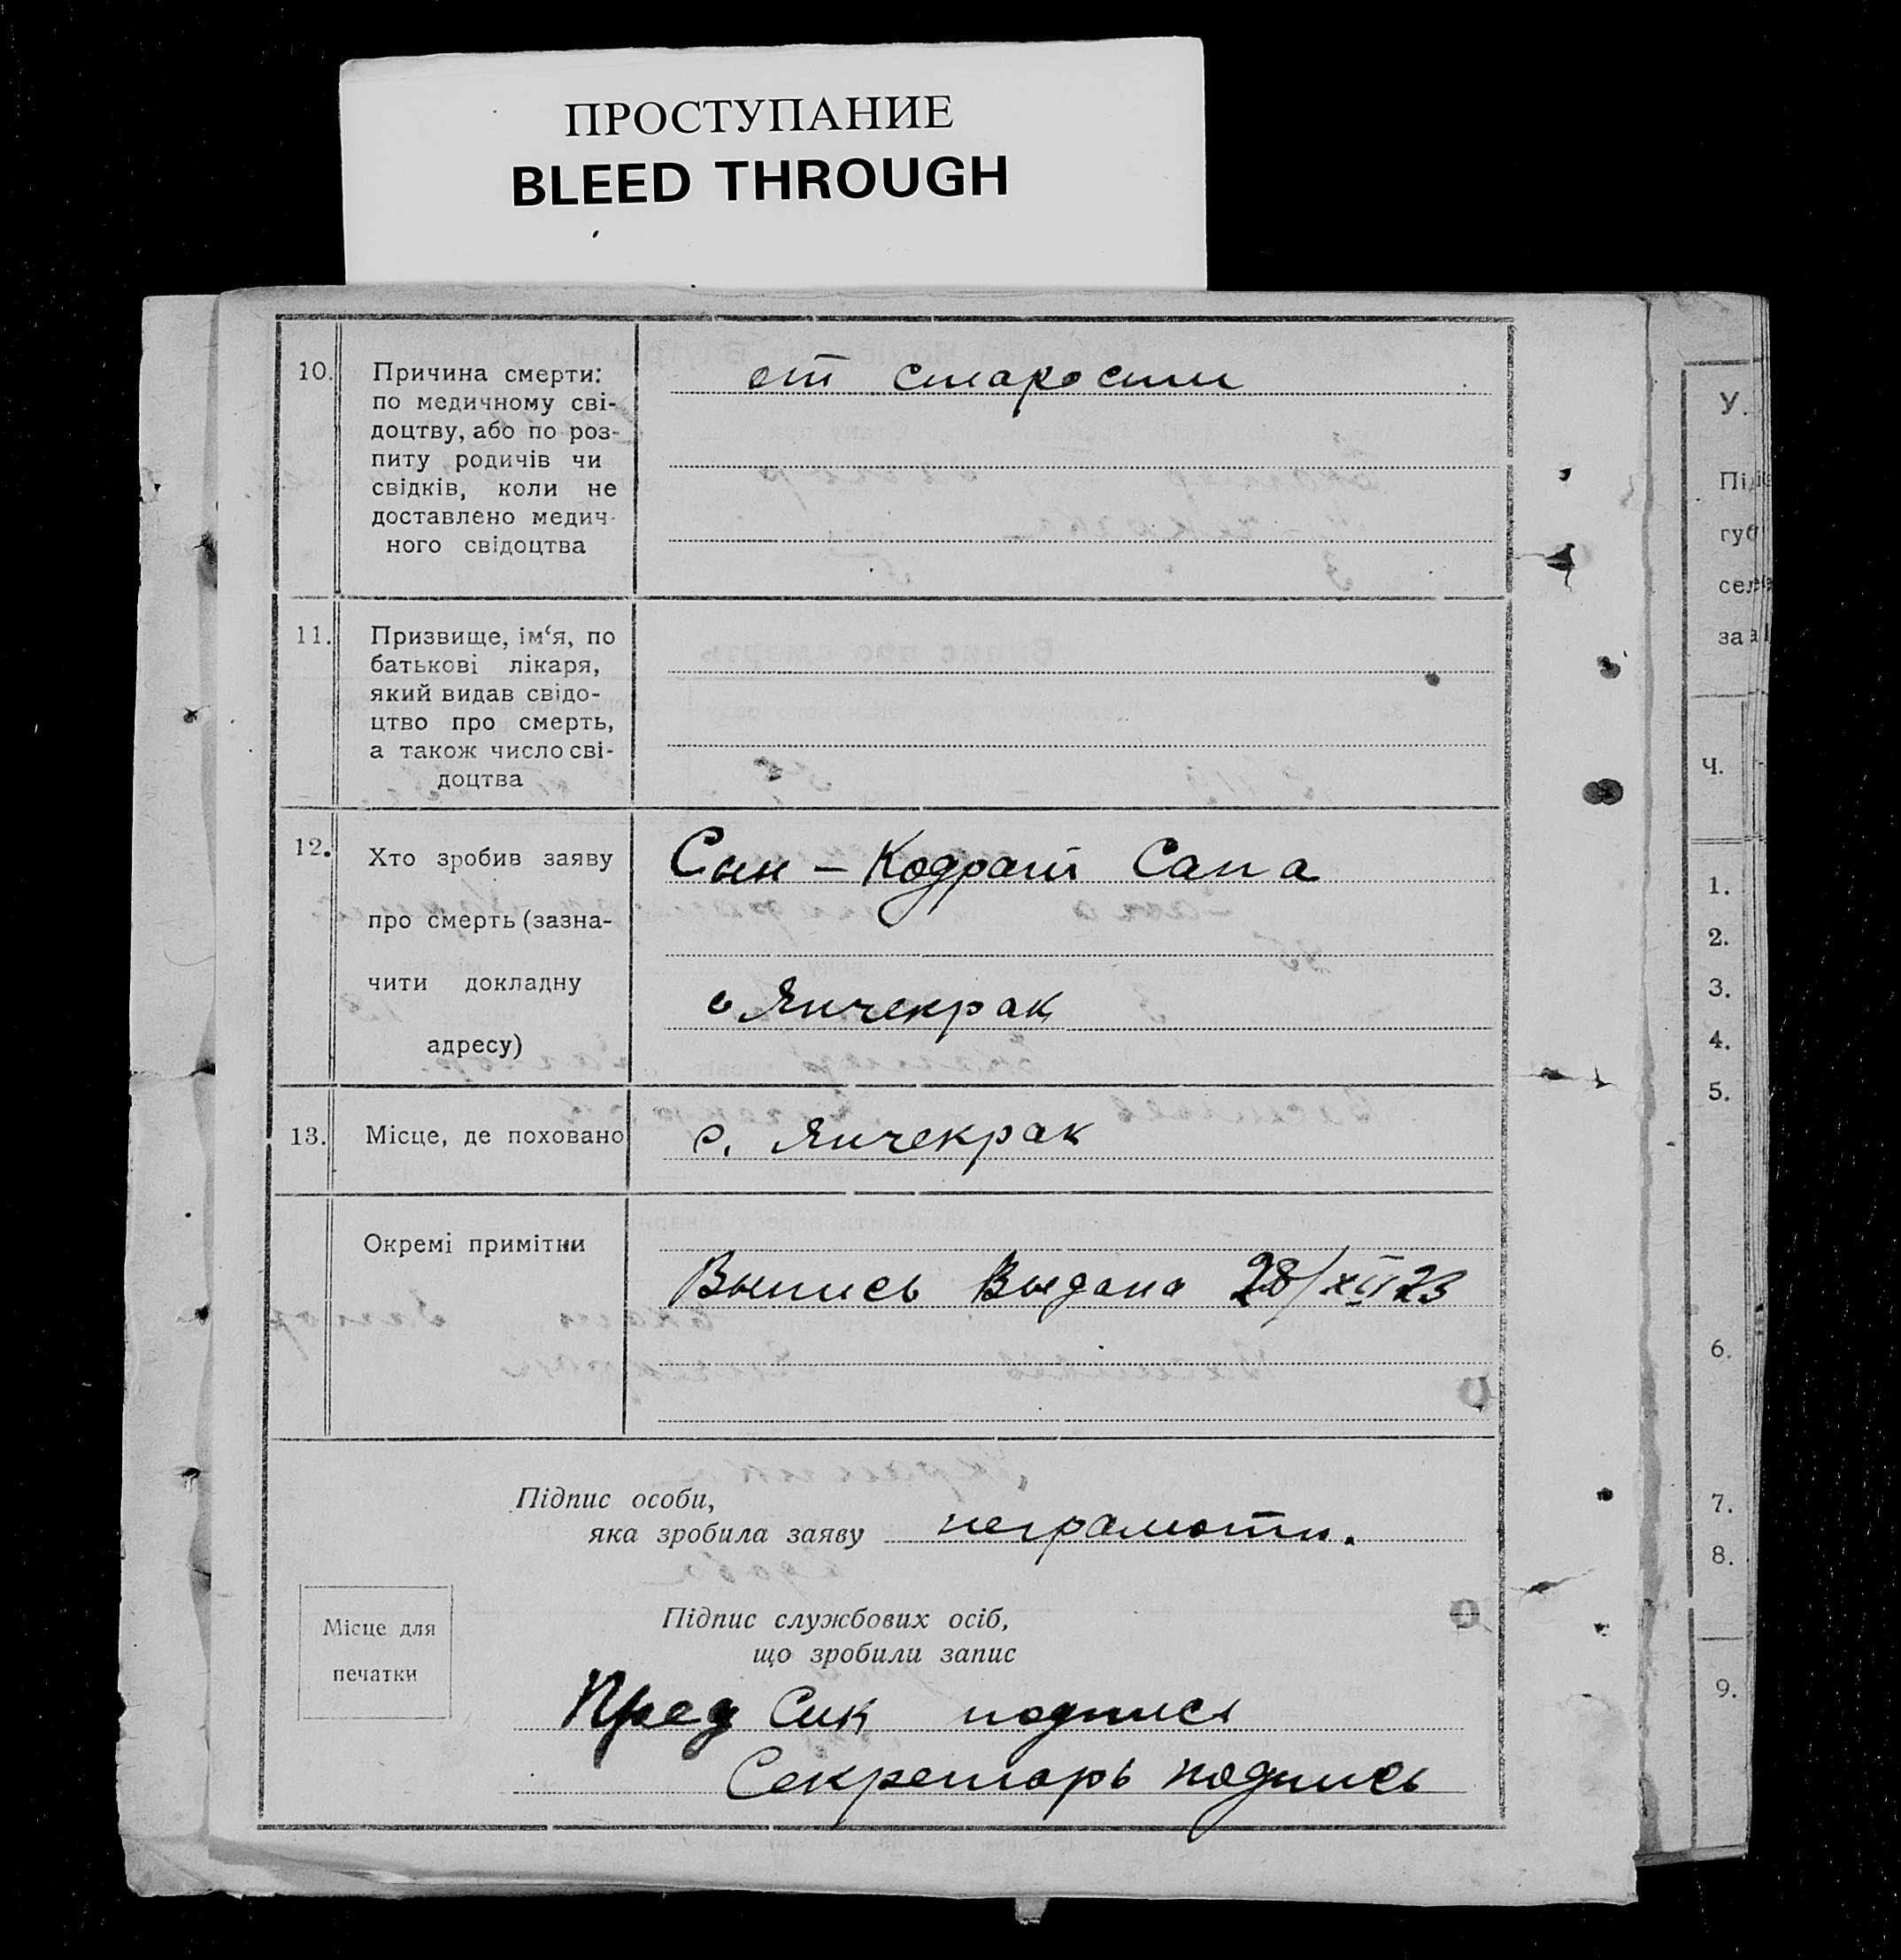 ПРОСТУПАНИЕ
BLEED THROUGH
10. Причина смерти: от старости
по медичному сві-
доцтву, або по роз-
питу родичів чи
свідків, коли не
доставлено медич-
ного свідоцтва
11. Призвище, ім‘я, по
батькові лікаря,
який видав свідо-
цтво про смерть,
а також число сві-
доцтва
12. Хто зробив заяву Сын – Кодрат Сапа
про смерть (зазна-
чити докладну с Янчекрак
адресу)
13. Місце, де поховано с. Янчекрак
Окремі примітки
Выпись Выдана 28/XII 23
Підпис особи,
яка зробила заяву неграмотн.
Місце для
печатки
Підпис службових осіб,
що зробили запис
Пред Сик подпись
Секретарь подпись
У.
Під
губ
сел
за
Ч.
1.
2.
3.
4.
5.
6.
7.
8.
9.